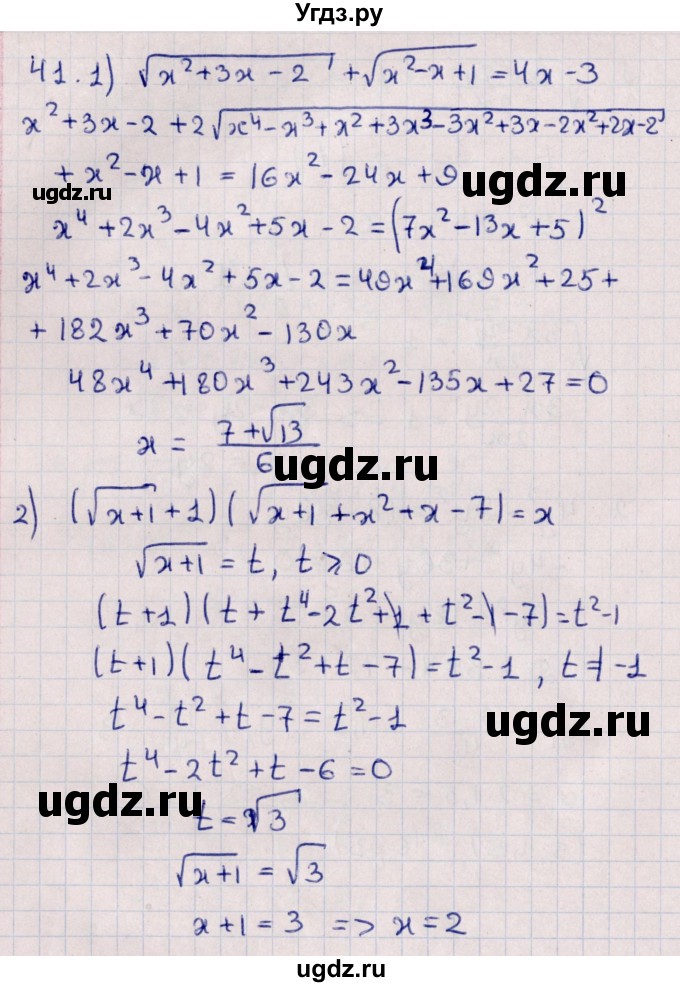 Угдз.ру
41.1) √(x²+3x-2) + √(x²-x+1) = 4x-3
x²+3x-2+2√(x⁴-x³+x²+3x³-3x²+3x-2x²+2x-2)
+x²-x+1=16x²-24x+9
ugdz.ru
ugdz.ru
x⁴+2x³-4x²+5x-2=(7x²-13x+5)²
x⁴+2x³-4x²+5x-2=49x⁴+169x²+25+
+182x³+70x²-130x
48x⁴+180x³+243x²-135x+27=0
x = (7+√13)/6
ugdz.ru
2) (√(x+1)+1)(√(x+1)+x²+x-7)=x
√(x+1)=t, t≥0
(t+1)(t+t⁴-2t²+1+t²-1-7)=t²-1
(t+1)(t⁴-t²+t-7)=t²-1, t≠-1
ugdz.ru
t⁴-t²+t-7=t²-1
ugdz.ru
t⁴-2t²+t-6=0
ugdz.ru
t=√3
√(x+1)=√3
x+1=3 => x=2
ugdz.ru